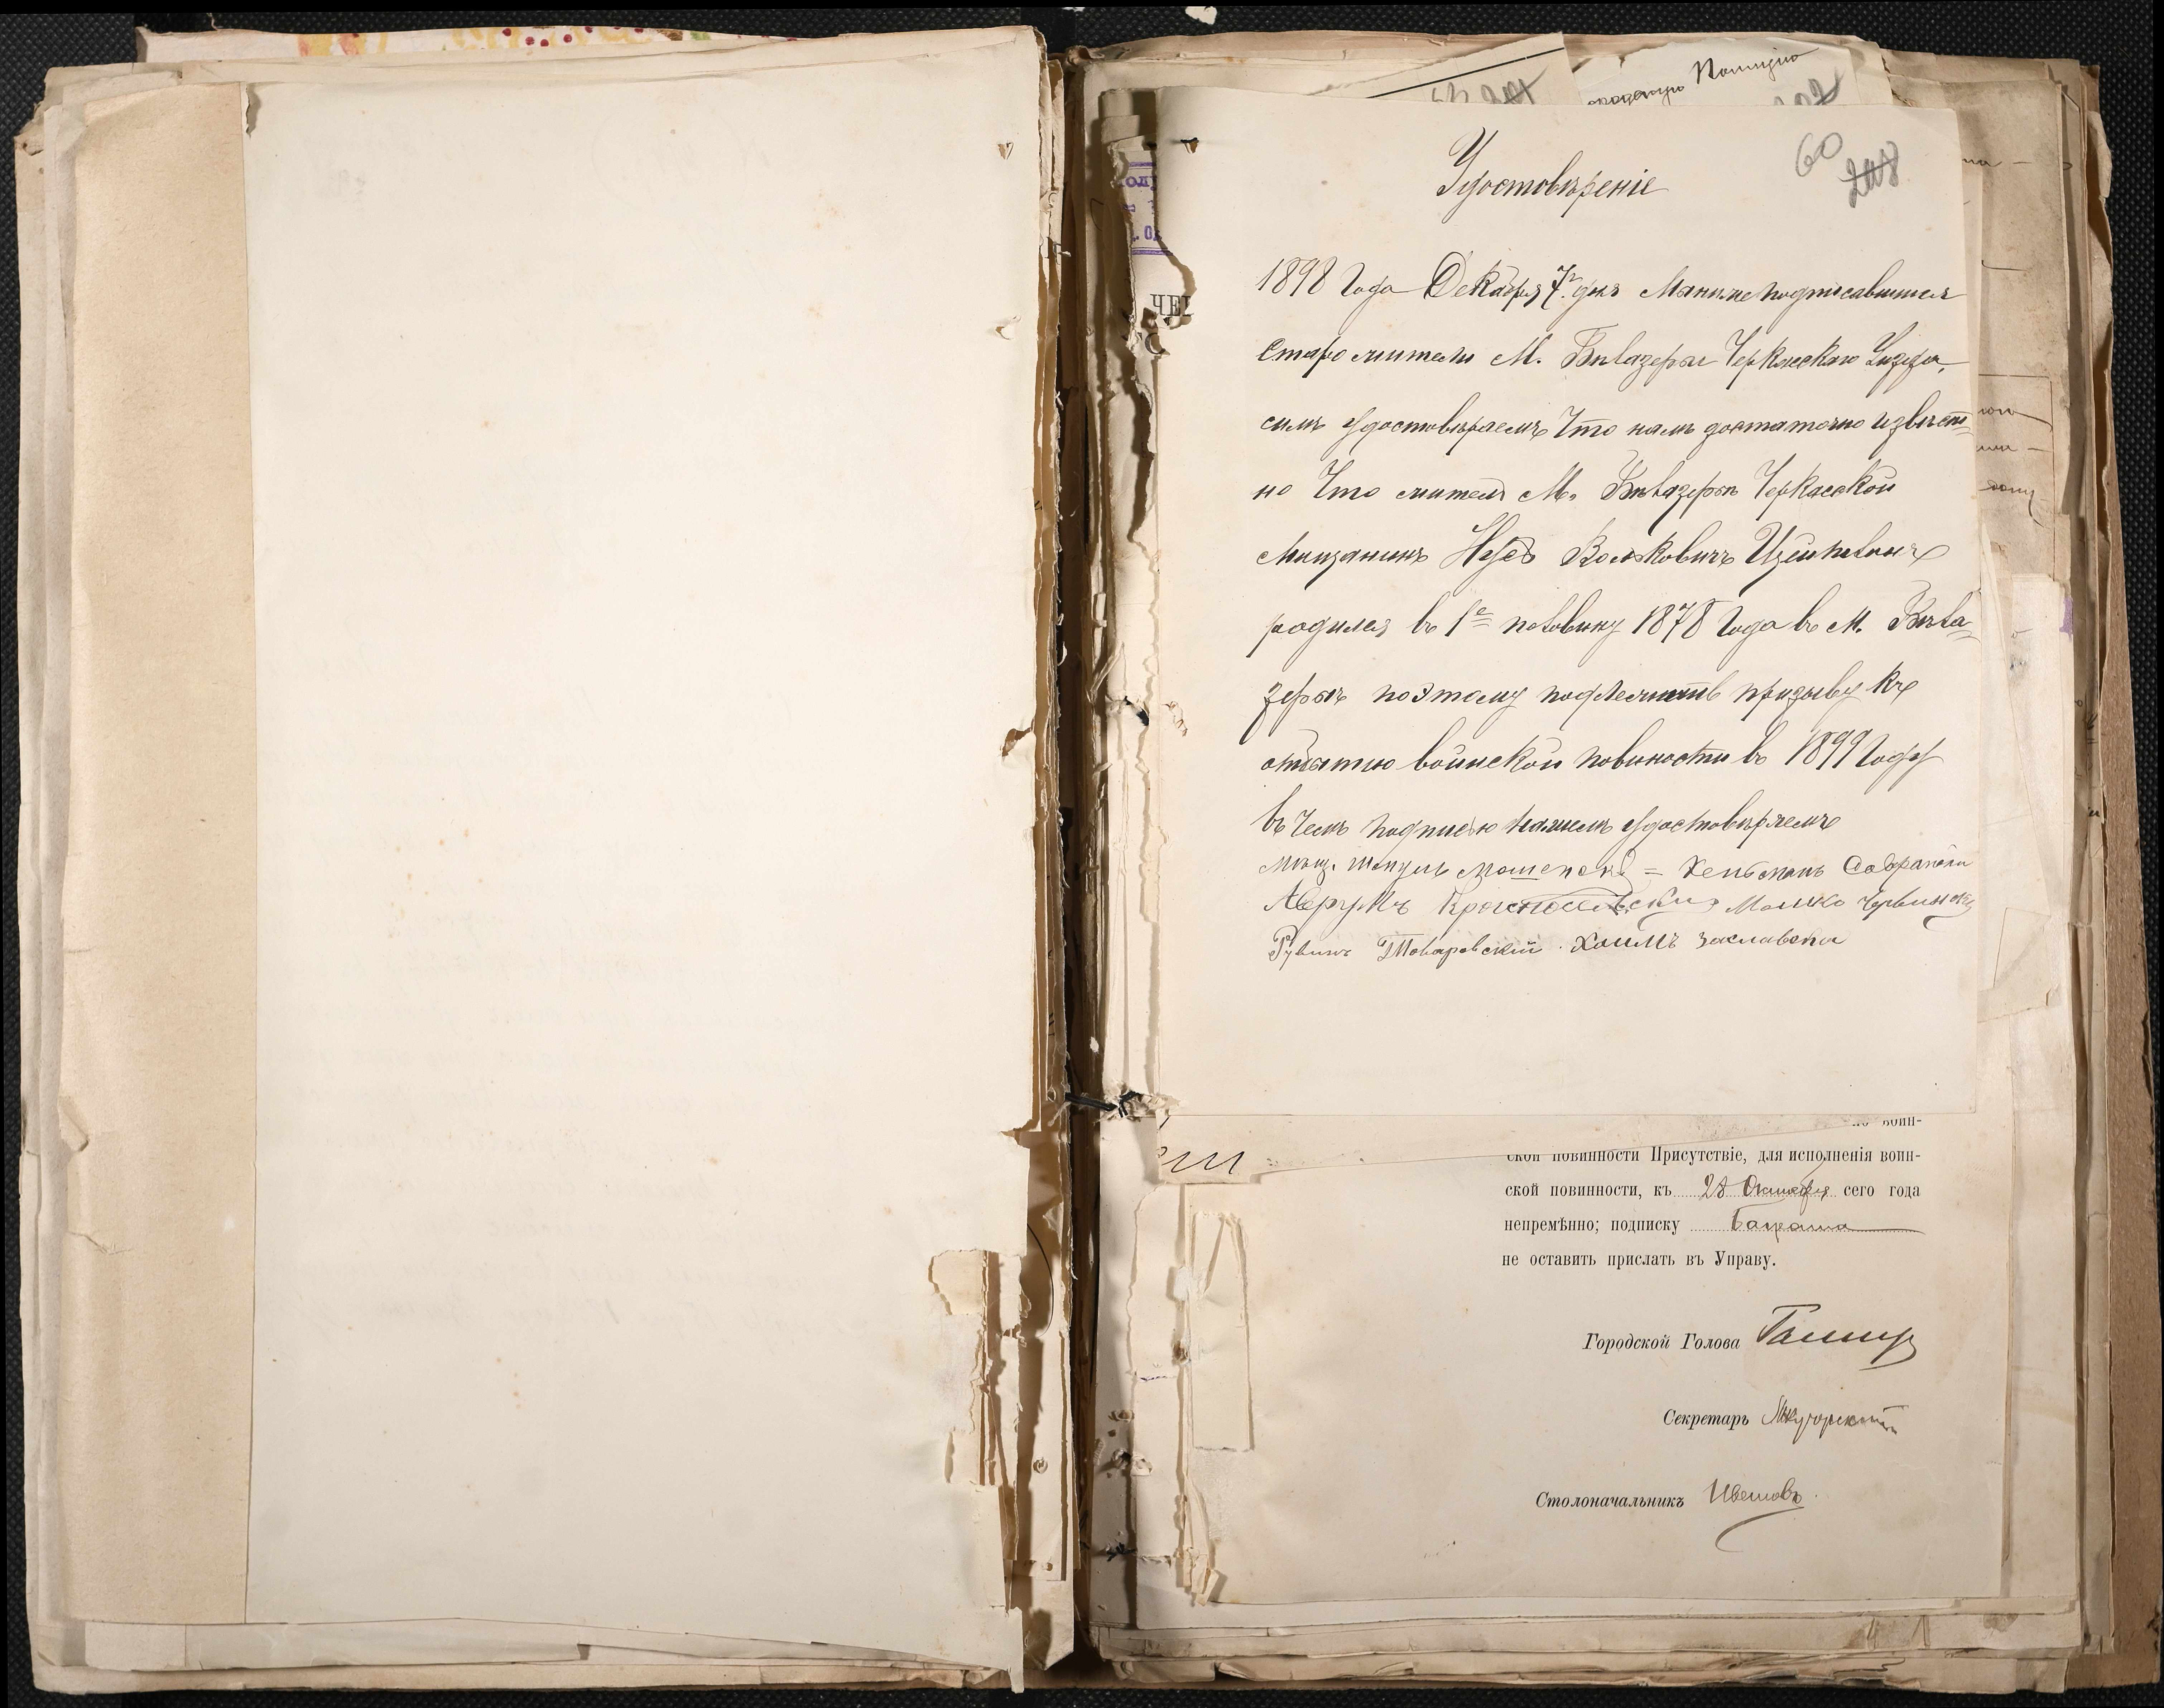 Полицию
60
208
Удостовѣреніе
1898 Года Декабря 7го дня Мы нижеподписавшиеся
старожители М. Бѣлазерья Черкаскаго Уезда,
симъ удостовѣраемъ Что намъ достаточно извѣст-
но Что житель М. Бѣлазерья Черкаской
Мищанинъ Волковичъ
родился въ 1е половину 1878 Года въ М. Бѣла-
зерье поэтому подлежить призыву къ
отбытию воинской повиности въ 1899 Году
въ чемъ подписью нашемъ удостовѣряемъ
мѣщ. = Хейсманъ
Аврумъ Красносельский Мошко
Рувинъ Товаровский. Хаимъ Заславски
ЧЕР
ской повинности Присутствіе, для исполненія воин-
ской повинности, къ 28 Октября сего года
непремѣнно; подписку
не оставить прислать въ Управу.
Городской Голова
Секретарь
Столоначальникъ